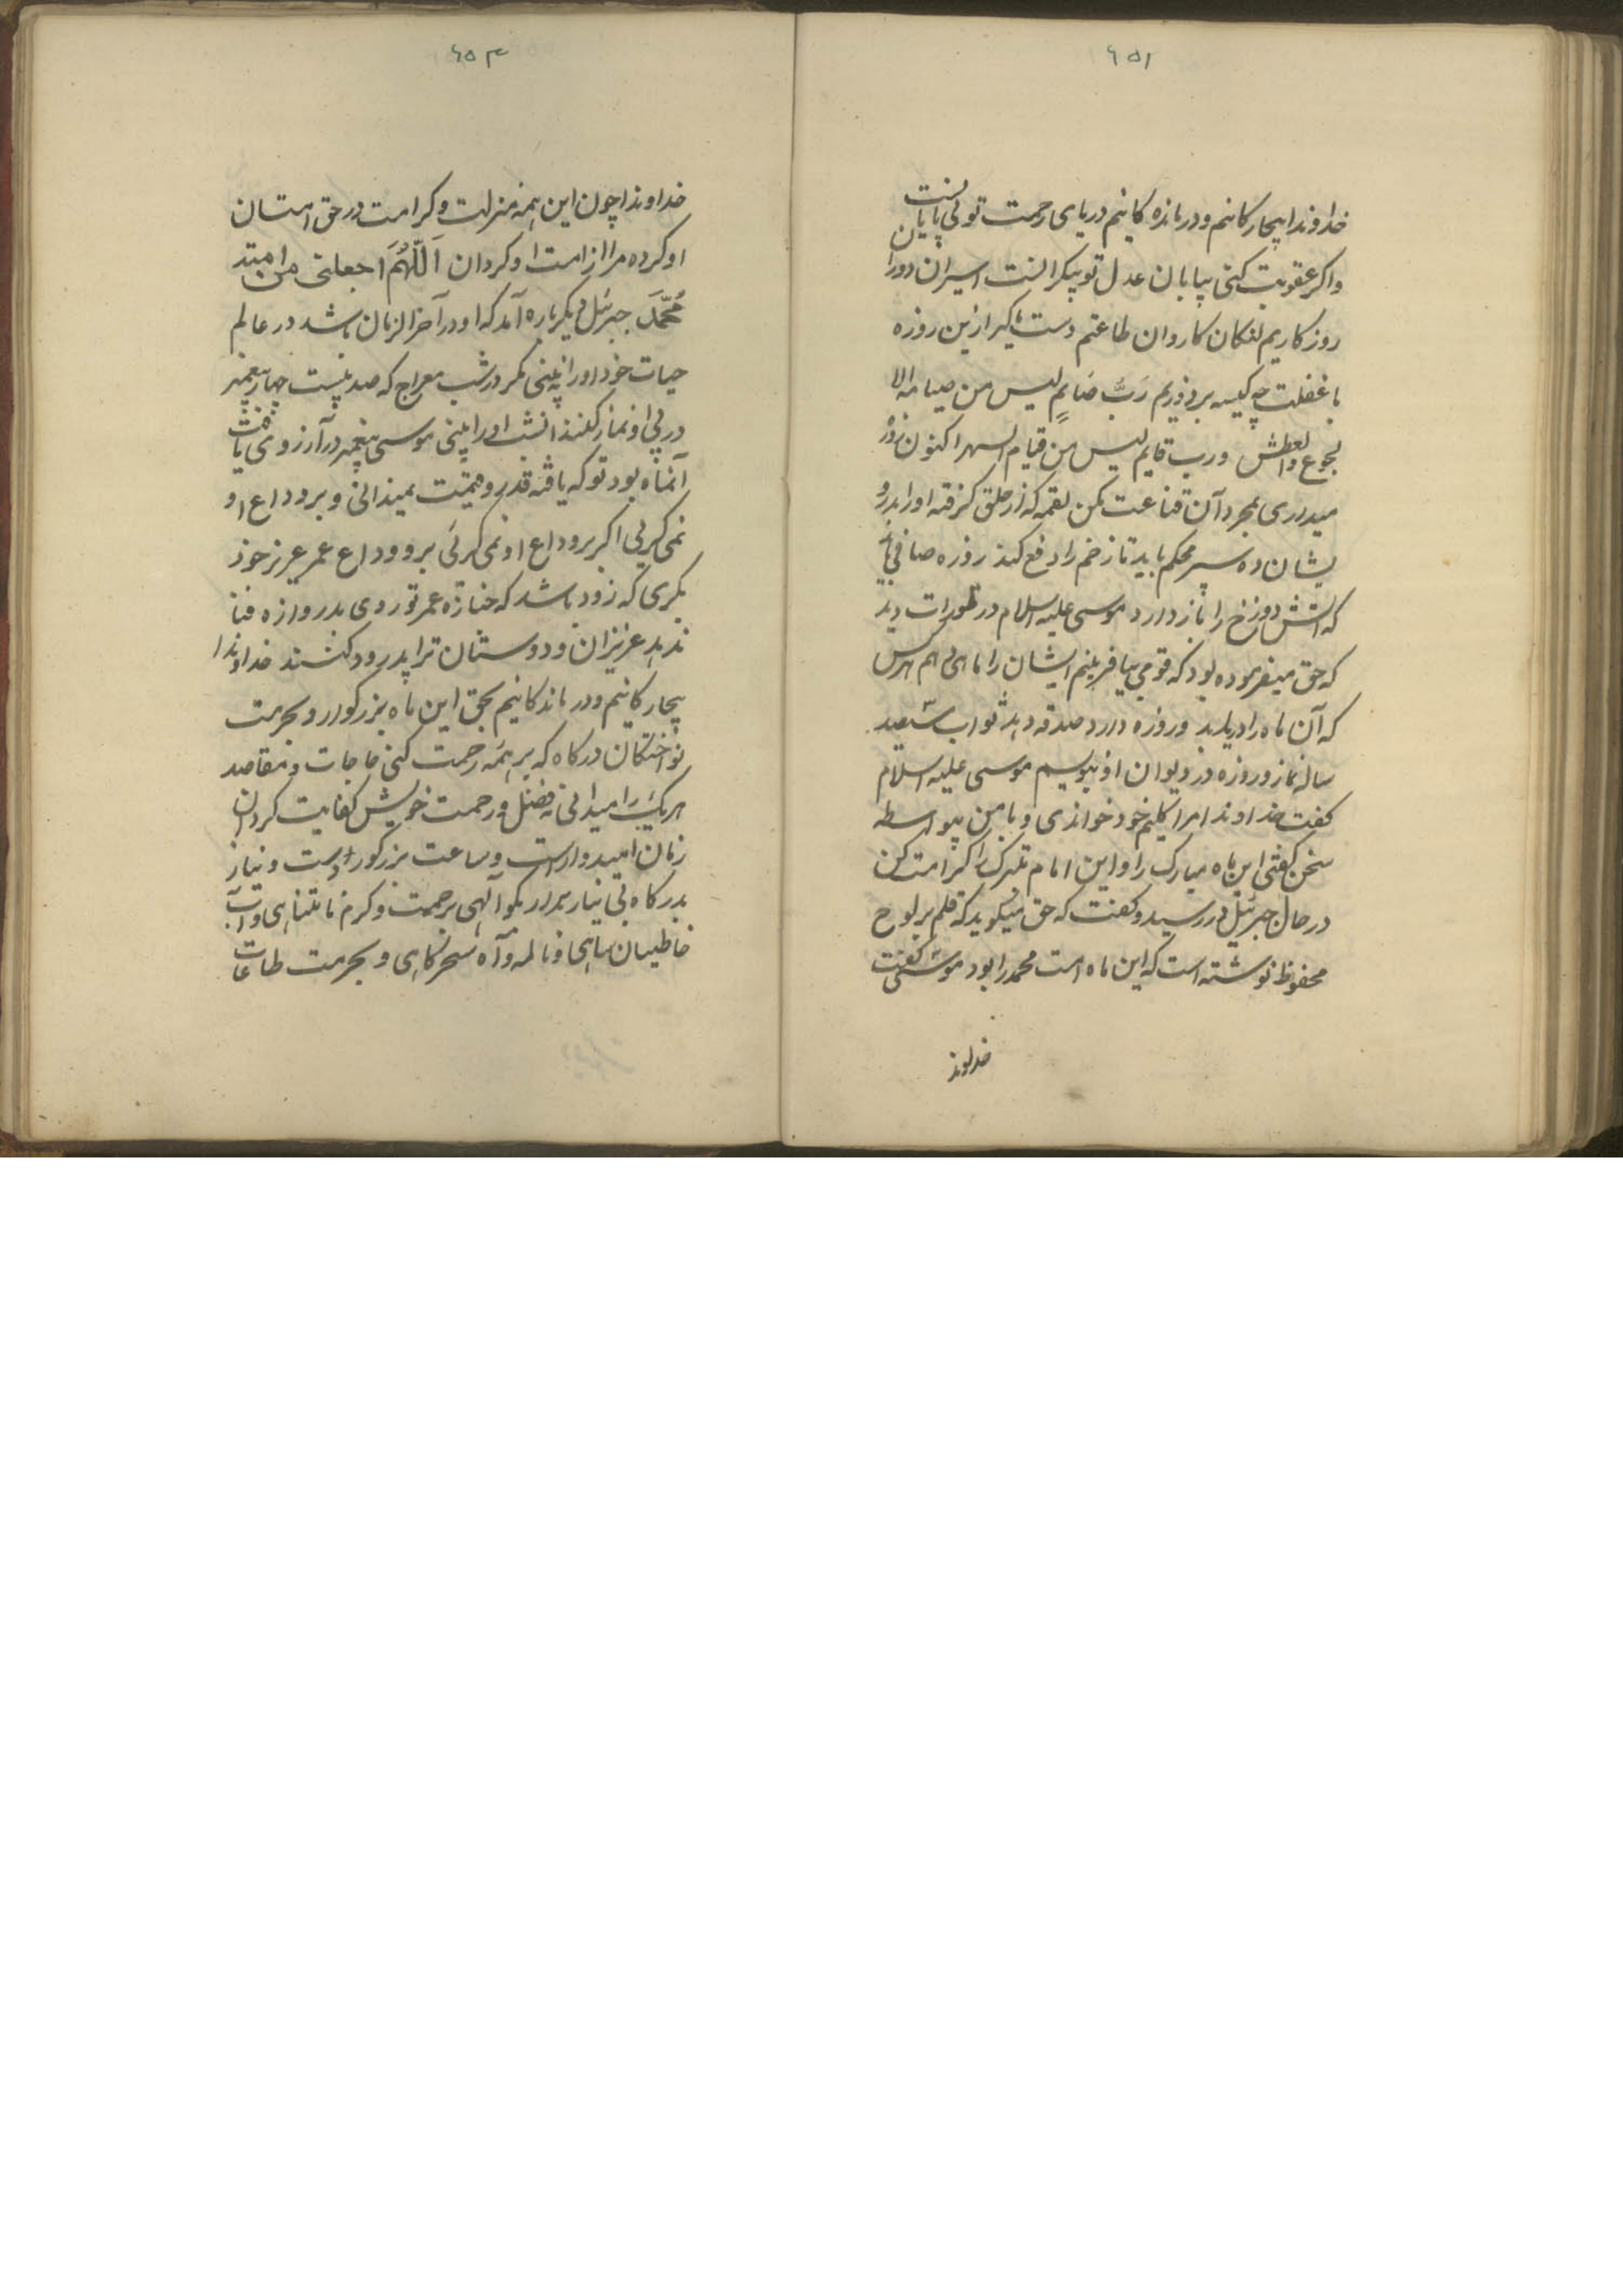 ۶۵۱
خداوندا بیچارگانیم و درمانده گانیم دریای رحمت تو بی پایانست
واگر عقوبت کنی بیابان عدل تو بیکرانست اسیران دور
روزگاریم لنگان کاروان طاعتیم دست گیر ازین روزه
با غفلت چه کیسه بردوزیم رَبَّ صَایمٍ لیس من صیامه الا
لجوع والعطش و رب قایم لیس من قیام السهر اکنون روزه
میداری بمجرد آن قناعت مکن لقمه که از حلق گرفته اورا بدرو
یشان ده سپر محکم باید تا زخم را دفع کند روزه صافی باید
که آتش دوزخ را باز دارد موسی علیه السلام در تورات دید
که حق میفرموده بود که قومی بیافرینم ایشان را ماهی دهم هرکس
که آن ماه را دریابد و روزه دارد صدقه دهد ثواب ششصد
ساله نماز و روزه در دیوان او بنویسم موسی علیه السلام
گفت خداوندا مرا کلیم خود خواندی و با من بیواسطه
سخن گفتی این ماه مبارک را و این ایام متبرک را کرامت کن
در حال جبرئیل در رسید و گفت که حق میگوید که قلم بر لوح
محفوظ نوشته است که این ماه امت محمد را بود موسی گفت
خداوند
۶۵۳
خداوندا چون این همه منزلت و کرامت در حق امتان
او کرده مرا از امت او گردان اَللّهُمَ اجعلنی من امته
مُحمّدَ جبرئیل دیگر باره آمد که او در آخر الزمان باشد در عالم
حیات خود اورا نه بینی مگر در شب معراج که صد و بیست چهار پیغمبر
در پی او نماز کنند آنشب اورا بینی موسی پیغمبر در آرزوی یافت
آنماه بود تو که یافته قدر و قیمت نمیدانی و بر وداع او
نمی گریی اگر بر وداع او نمی گرئی برو وداع عمر عزیز خود
بگری که زود باشد که جنازه عمر تو روی بدروازه فنا
نهد عزیزان و دوستان ترا پدرود کنند خداوندا
بیچارگانیم و درماندگانیم بحق این ماه بزرگوار و بحرمت
نواختگان درگاه که بر همه رحمت کنی حاجات و مقاصد
هریک را میدانی بفضل و رحمت خویش کفایت گردان
زمان امیدوارست و ساعت بزرگوار دست و نیاز
بدرگاه بی نیاز بردار بگو آلهی برحمت و کرم نامتناهی و آب
خاطیان ساهی و ناله و آه سحرگاهی و بحرمت طاعات